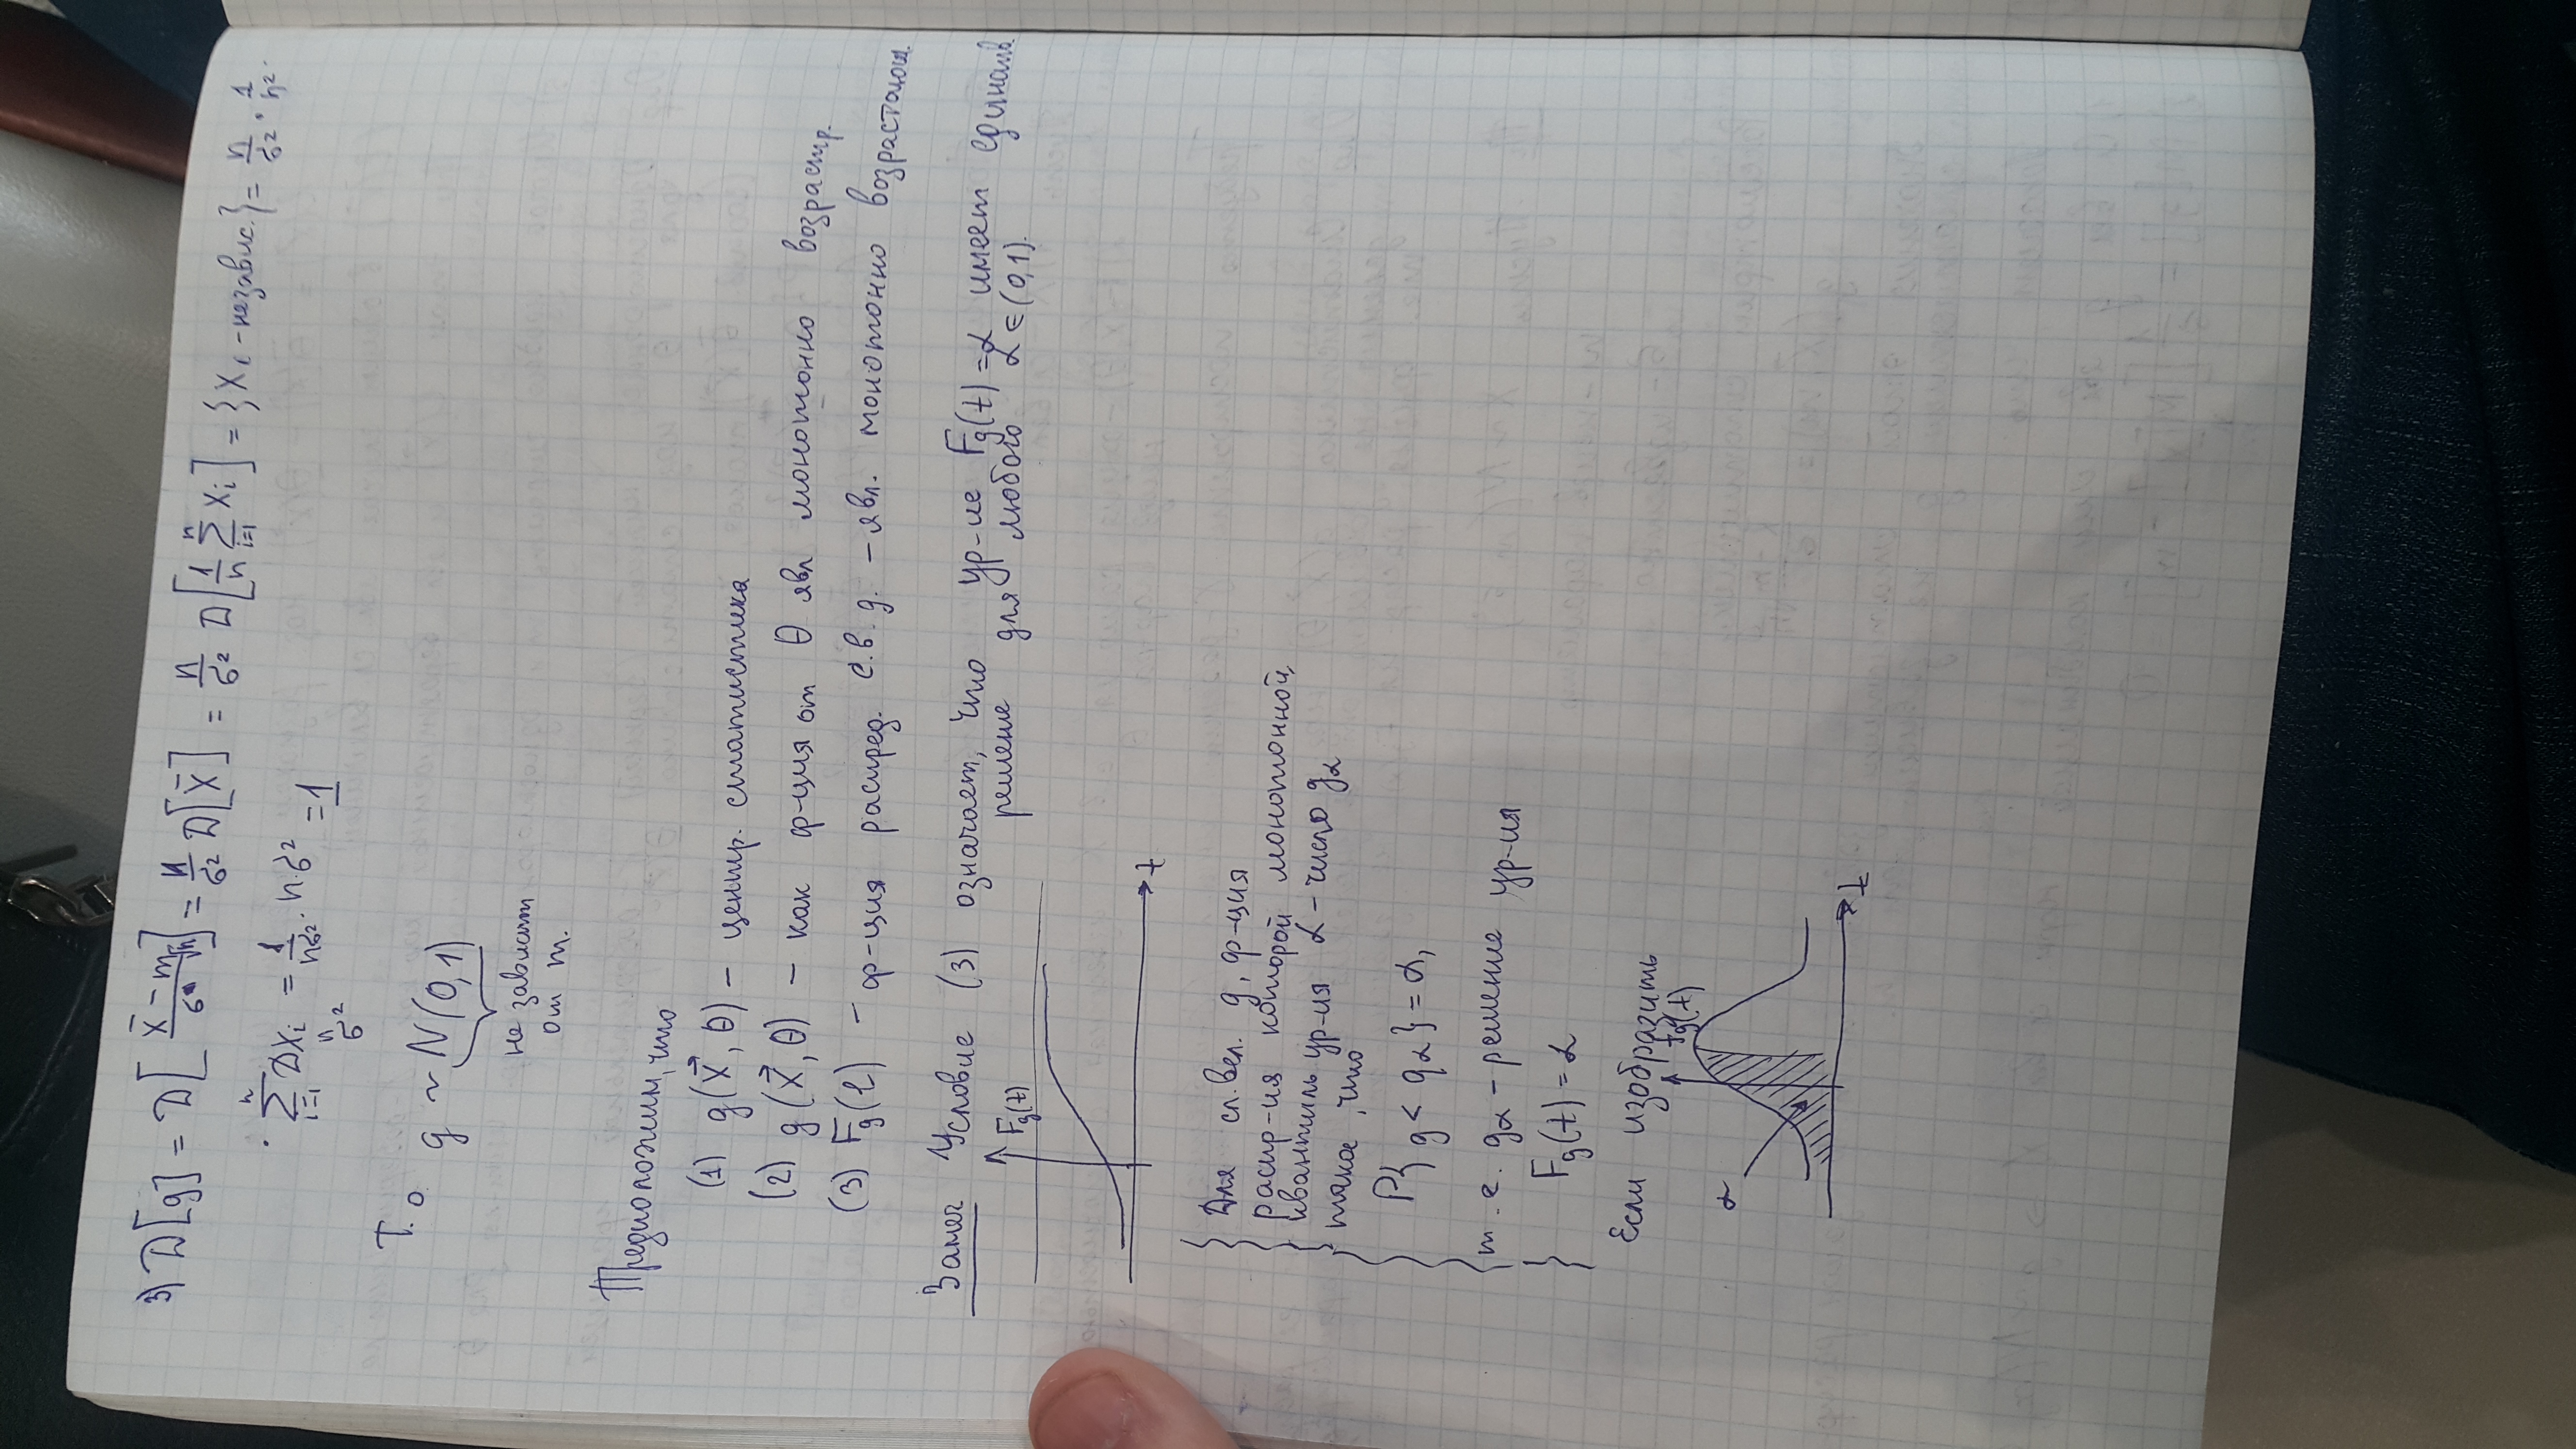 3) D[g] = D[(X̄ − m)/σ √n] = n/σ² D[X̄] = n/σ² D[1/n ∑ᵢ₌₁ⁿ Xᵢ] = {Xᵢ – независ.} = n/σ² · 1/n² ·
· ∑ᵢ₌₁ⁿ DXᵢ = 1/nσ² · n · σ² = 1
n
σ²
Т.о. g ~ N(0,1)
не зависит
от m.
Предположим, что
(1) g(X⃗, θ) – центр. статистика
(2) g(X⃗, θ) – как ф-ция от θ явл монотонно возраст.
(3) Fg(t) – ф-ция распред. с.в. g. – явл. монотонно возрастающ.
Замеч Условие (3) означает, что ур-ие Fg(t) = α имеет единств
решение для любого α ∈ (0,1).
Fg(t)
t
Для сл. вел. g, ф-ция
распр-ия которой монотонной,
квантиль ур-ия α – число gα
такое, что
P{g < gα} = α,
т.е. gα – решение ур-ия
Fg(t) = α
Если изобразить
α
fg(t)
t